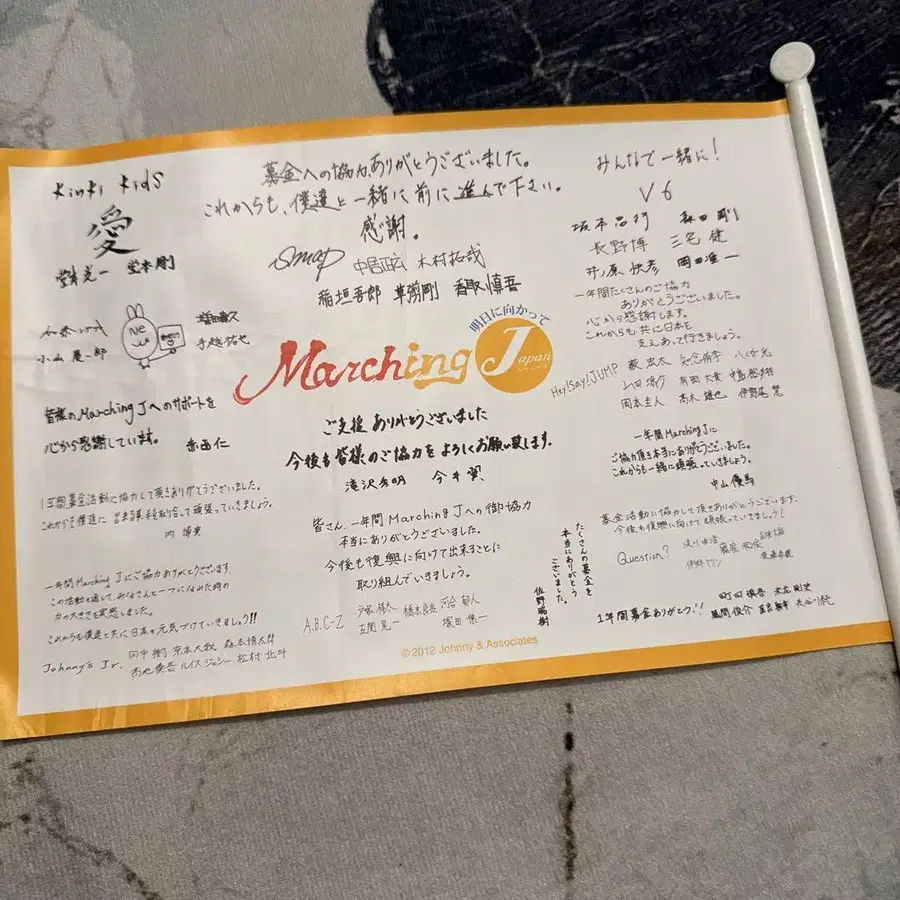 KinKi KidS
愛
堂本光一 堂本剛
募金への協力ありがとうございました。
これからも、僕達と一緒に前に進んで下さい。
感謝。
SMAP 中居正広 木村拓哉
稲垣吾郎 草彅剛 香取慎吾
みんなで一緒に!
V6
坂本昌行 森田剛
長野博 三宅健
井ノ原快彦 岡田准一
NewS
小山慶一郎
増田貴久
手越祐也
明日に向かって
Marching J
Japan
ジャパン
一年間たくさんのご協力
ありがとうございました。
心から感謝します。
これからも共に日本を
支えあって行きましょう。
Hey!Say!JUMP 薮宏太 知念侑李 八乙女光
山田涼介 有岡大貴 中島裕翔
岡本圭人 髙木雄也 伊野尾慧
皆様のMarching Jへのサポートを
心から感謝しています。 赤西仁
ご支援ありがとうございました
今後も皆様のご協力をよろしくお願い致します。
滝沢秀明 今井翼
一年間Marching Jに
ご協力頂き本当にありがとうございました。
これからも一緒に頑張っていきましょう。
中山優馬
1年間募金活動に協力して頂きありがとうございました。
これからも僕達に出来る事を取り組んで頑張っていきましょう。
内博貴
皆さん、一年間Marching Jへの御協力
本当にありがとうございました。
今後も復興に向けて出来ることに
取り組んでいきましょう。
A.B.C-Z
戸塚祥太 橋本良亮 河合郁人
五関晃一 塚田僚一
たくさんの募金を
本当にありがとう
ございました。
佐野瑞樹
募金活動に協力して頂きありがとうございます。
今後も復興に向けて頑張っていきましょう!
Question?
一年間Marching Jにご協力ありがとうございます
この活動を通して、みなさんと一つになれた時の
力の大きさを実感しました。
これからも僕達と共に日本を元気づけていきましょう!!
Johnny's Jr. 田中樹 京本大我 森本慎太郎
髙地優吾 ルイスジェシー 松村北斗
1年間募金ありがとう!!
町田慎吾 米花剛史
© 2012 Johnny & Associates